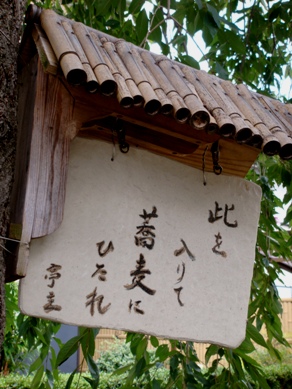 此を
入りて
蕎麦に
ひたれ
亭主